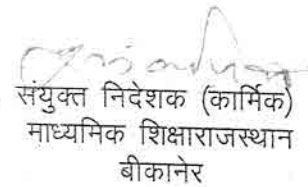 संयुक्त निदेशक (कार्मिक)
माध्यमिक शिक्षाराजस्थान
बीकानेर